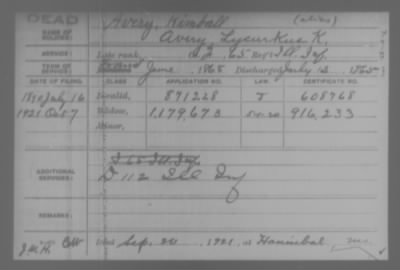 DEAD
Avery, Kimball (alias)
NAME OF SOLDIER: Avery Lycurkus K.
SERVICE: Late rank, I 65 Reg't Ill. Inf.
TERM OF SERVICE: Enlisted June 1865 Discharged July 13 1865
DATE OF FILING. CLASS. APPLICATION NO. LAW. CERTIFICATE NO.
1890 July 16 Invalid, 871228 J 608768
1921 Oct 7 Widow, 1,179,673 916,233
Minor,
I 65 Ill Inf.
ADDITIONAL SERVICES: D 112 Ill Inf
REMARKS:
Died Sep. 24 1921, at Hannibal Mo.